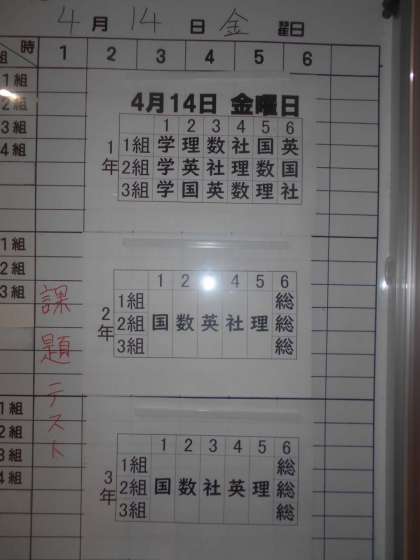 4月14日金曜日
時 1 2 3 4 5 6
組
1組
2組
3組
4組
4月14日 金曜日
1 2 3 4 5 6
1年
1組 学 理 数 社 国 英
2組 学 英 社 理 数 国
3組 学 国 英 数 理 社
1組
2組
3組
課題テスト
1 2 3 4 5 6
2年
1組 総
2組 国 数 英 社 理 総
3組 総
1組
2組
3組
4組
1 2 3 4 5 6
3年
1組 総
2組 国 数 社 英 理 総
3組 総